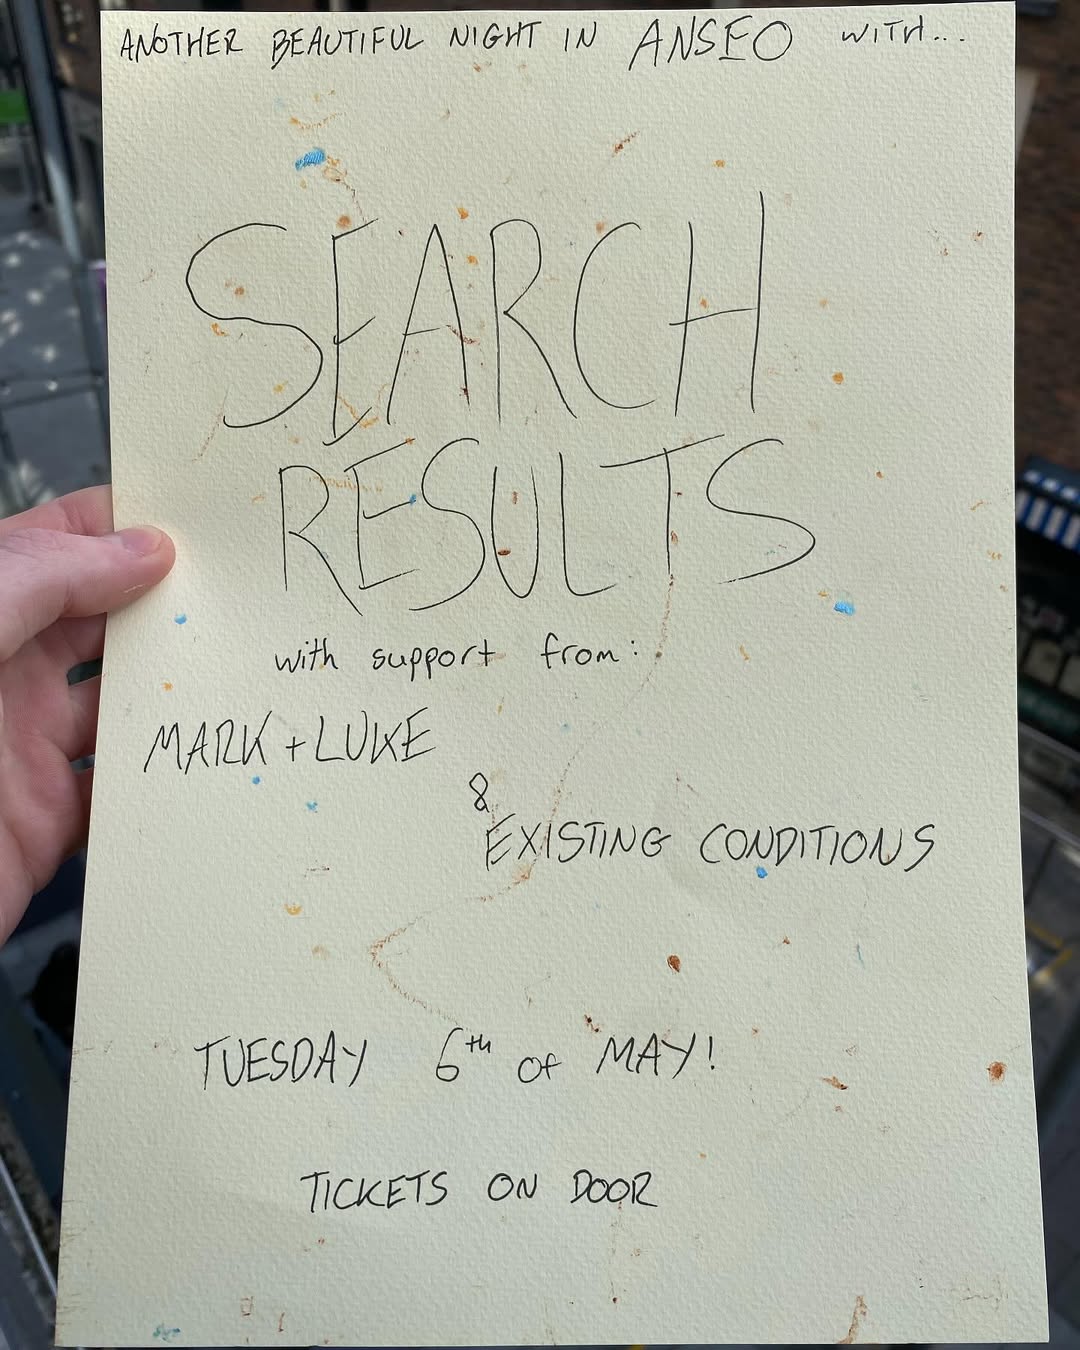 ANOTHER BEAUTIFUL NIGHT IN ANSEO WITH...
SEARCH
RESULTS
with support from:
MARK + LUKE
&
EXISTING CONDITIONS
TUESDAY 6th of MAY!
TICKETS ON DOOR